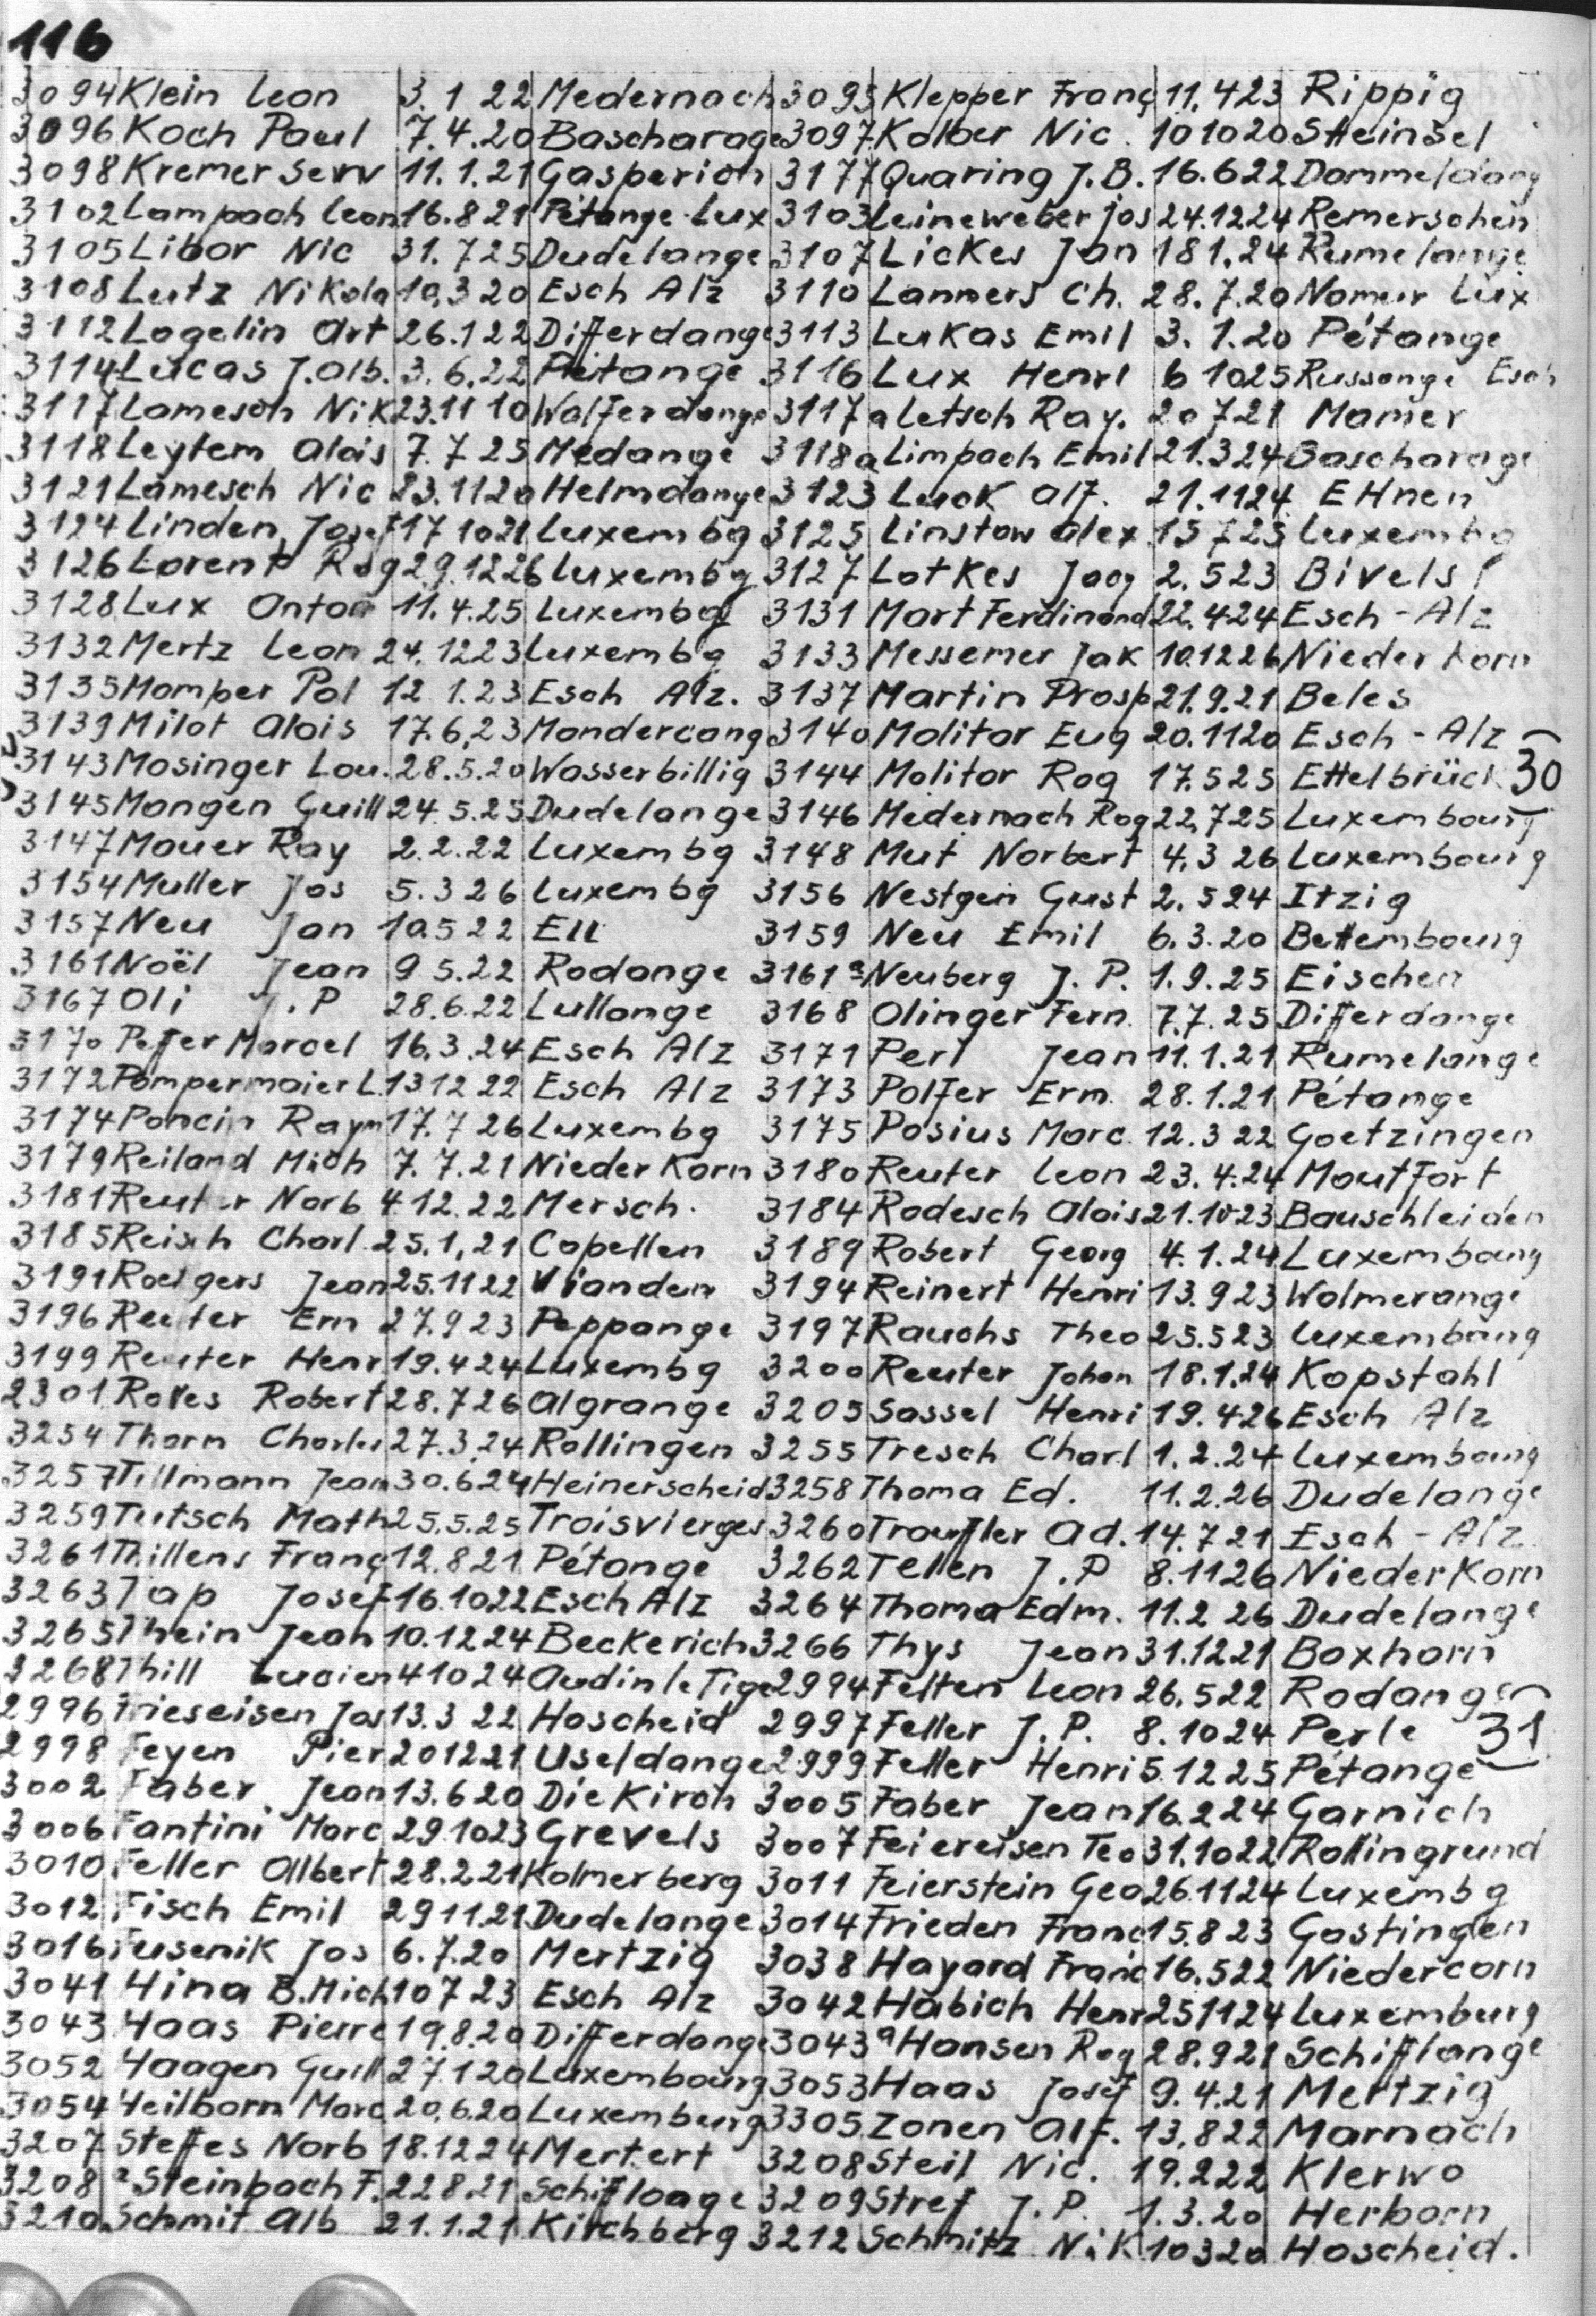 116
3094 Klein Leon 3. 1 22 Medernach 3095 Klepper Franç 11. 4 23 Rippig
3096 Koch Paul 7.4.20 Bascharage 3097 Kolber Nic. 10 10 20 Steinsel
3098 Kremer Serv 11. 1. 21 Gasperich 3177 Quaring J.B. 16.6 22 Dommeldang
3102 Lampach Leon 16.8 21 Pétange Lux 3103 Leineweber Jos 24.12 24 Remerschen
3105 Libar Nic 31. 7 25 Dudelange 3107 Lickes Jan 18 1. 24 Rumelange
3108 Lutz Nikola 10.3 20 Esch Alz 3110 Lanners Ch. 28. 7.20 Namur Lux
3112 Logelin Art 26.1 22 Differdange 3113 Lukas Emil 3. 1.20 Pétange
3114 Lucas J.Alb. 3. 6.22 Pétange 3116 Lux Henri 6 10 25 Russange Esch
3117 Lamesch Nik 23.11 10 Walferdange 3117a Letsch Ray. 20 7 21 Mamer
3118 Leytem Alois 7. 7 25 Medange 3118a Limpach Emil 21.3 24 Bascharage
3121 Lamesch Nic 23.11 20 Helmdange 3123 Luck Alf. 21.11 24 EHnen
3124 Linden Josef 17 10 21 Luxembg 3125 Linstow Alex 15 7 25 Luxembg
3126 Lorent Rog 29.12 26 Luxembg 3127 Lotkes Jacq 2. 5 23 Bivels
3128 Lux Anton 11. 4.25 Luxembg 3131 Mart Ferdinand 22. 4 24 Esch - Alz
3132 Mertz Leon 24. 12 23 Luxembg 3133 Messemer Jak 10.12 26 Niederkorn
3135 Momper Pol 12 1.23 Esch Alz. 3137 Martin Prosp 21.9.21 Beles
3139 Milot Alois 17.6.23 Mondercang 3140 Molitor Eug 20.11 20 Esch - Alz
3143 Mosinger Lou. 28.5.20 Wasserbillig 3144 Molitor Rog 17.5 25 Ettelbrück 30
3145 Mangen Guill 24.5.25 Dudelange 3146 Medernach Rog 22.7 25 Luxembourg
3147 Mauer Ray 2.2.22 Luxembg 3148 Mut Norbert 4.3 26 Luxembourg
3154 Muller Jos 5. 3 26 Luxembg 3156 Nestgen Gust 2. 5 24 Itzig
3157 Neu Jan 10.5 22 Ell 3159 Neu Emil 6.3.20 Bettembourg
3161 Noël Jean 9 5.22 Rodange 3161a Neuberg J. P. 1.9.25 Eischen
3167 Oli J.P 28.6.22 Lullange 3168 Olinger Fern. 7.7. 25 Differdange
3170 Peffer Marcel 16.3.24 Esch Alz 3171 Perl Jean 11. 1.21 Rumelange
3172 Pompermaier L. 13 12 22 Esch Alz 3173 Polfer Erm. 28. 1.21 Pétange
3174 Poncin Raym 17. 7 26 Luxembg 3175 Posius Marc. 12.3 22 Goetzingen
3179 Reiland Mich 7. 7.21 Niederkorn 3180 Reuter Leon 23. 4.24 Moutfort
3181 Reuter Norb 4 12. 22 Mersch. 3184 Rodesch Alois 21.10 23 Bauschleiden
3185 Reisch Charl. 25.1.21 Capellen 3189 Robert Georg 4. 1.24 Luxembourg
3191 Roetgers Jean 25.11 22 Vianden 3194 Reinert Henri 13. 9 23 Wolmerange
3196 Reuter Ern 27.9 23 Peppange 3197 Rauchs Theo 25.5 23 Luxembourg
3199 Reuter Henr 19.4 24 Luxembg 3200 Reuter Johan 18.1.24 Kopstahl
2301 Roves Robert 28. 7 26 Algrange 3205 Sassel Henri 19. 4 26 Esch Alz
3254 Thorn Charles 27.3.24 Rollingen 3255 Tresch Charl 1. 2.24 Luxembourg
3257 Tillmann Jean 30.6.24 Heinerscheid 3258 Thoma Ed. 11.2.26 Dudelange
3259 Teutsch Math 25.5.25 Troisvierges 3260 Trauffler Ad. 14.7 21 Esch - Alz.
3261 Thillens Franç 12.8 21 Pétange 3262 Tellen J.P 8.11 26 Niederkorn
3263 Tap Josef 16.10 22 Esch Alz 3264 Thoma Edm. 11.2 26 Dudelange
3265 Thein Jean 10.12 24 Beckerich 3266 Thys Jean 31.12.21 Boxhorn
3268 Thill Lucien 4 10 24 Audin le Tige 2994 Felten Leon 26.5 22 Rodange
2996 Frieseisen Jos 13.3 22 Hoscheid 2997 Feller J.P. 8. 10 24 Perle 31
2998 Feyen Pier 20 12 21 Useldange 2999 Feller Henri 5 12 25 Pétange
3002 Faber Jean 13.6 20 Diekirch 3005 Faber Jean 16.2 24 Garnich
3006 Fantini Marc 29.10 23 Grevels 3007 Feiereisen Teo 31.10 22 Rollingrund
3010 Feller Albert 28.2.21 Kolmerberg 3011 Feierstein Geo 26.11 24 Luxembg
3012 Fisch Emil 29 11.21 Dudelange 3014 Frieden Franc 15.8 23 Gostingen
3016 Fusenik Jos 6.7.20 Mertzig 3038 Hayard Franc 16.5 22 Niedercorn
3041 Hina B.Mich 10 7 23 Esch Alz 3042 Habich Henr 25 11 24 Luxemburg
3043 Haas Pierre 19.8.20 Differdange 3043a Hansen Rog 28.9 21 Schifflange
3052 Haagen Guill 27.1 20 Luxembourg 3053 Haas Josef 9.4.21 Mertzig
3054 Heilborn Marc 20.6.20 Luxemburg 3305 Zonen Alf. 13.8 22 Marnach
3207 Steffes Norb 18.12 24 Mertert 3208 Steil Nic. 19.2 22 Klerwo
3208a Steinbach F. 22 8.21 Schifflange 3209 Stref J.P. 1.3.20 Herborn
3210 Schmit Alb 21.1.21 Kirchberg 3212 Schmitz Nik 10 3 20 Hoscheid.